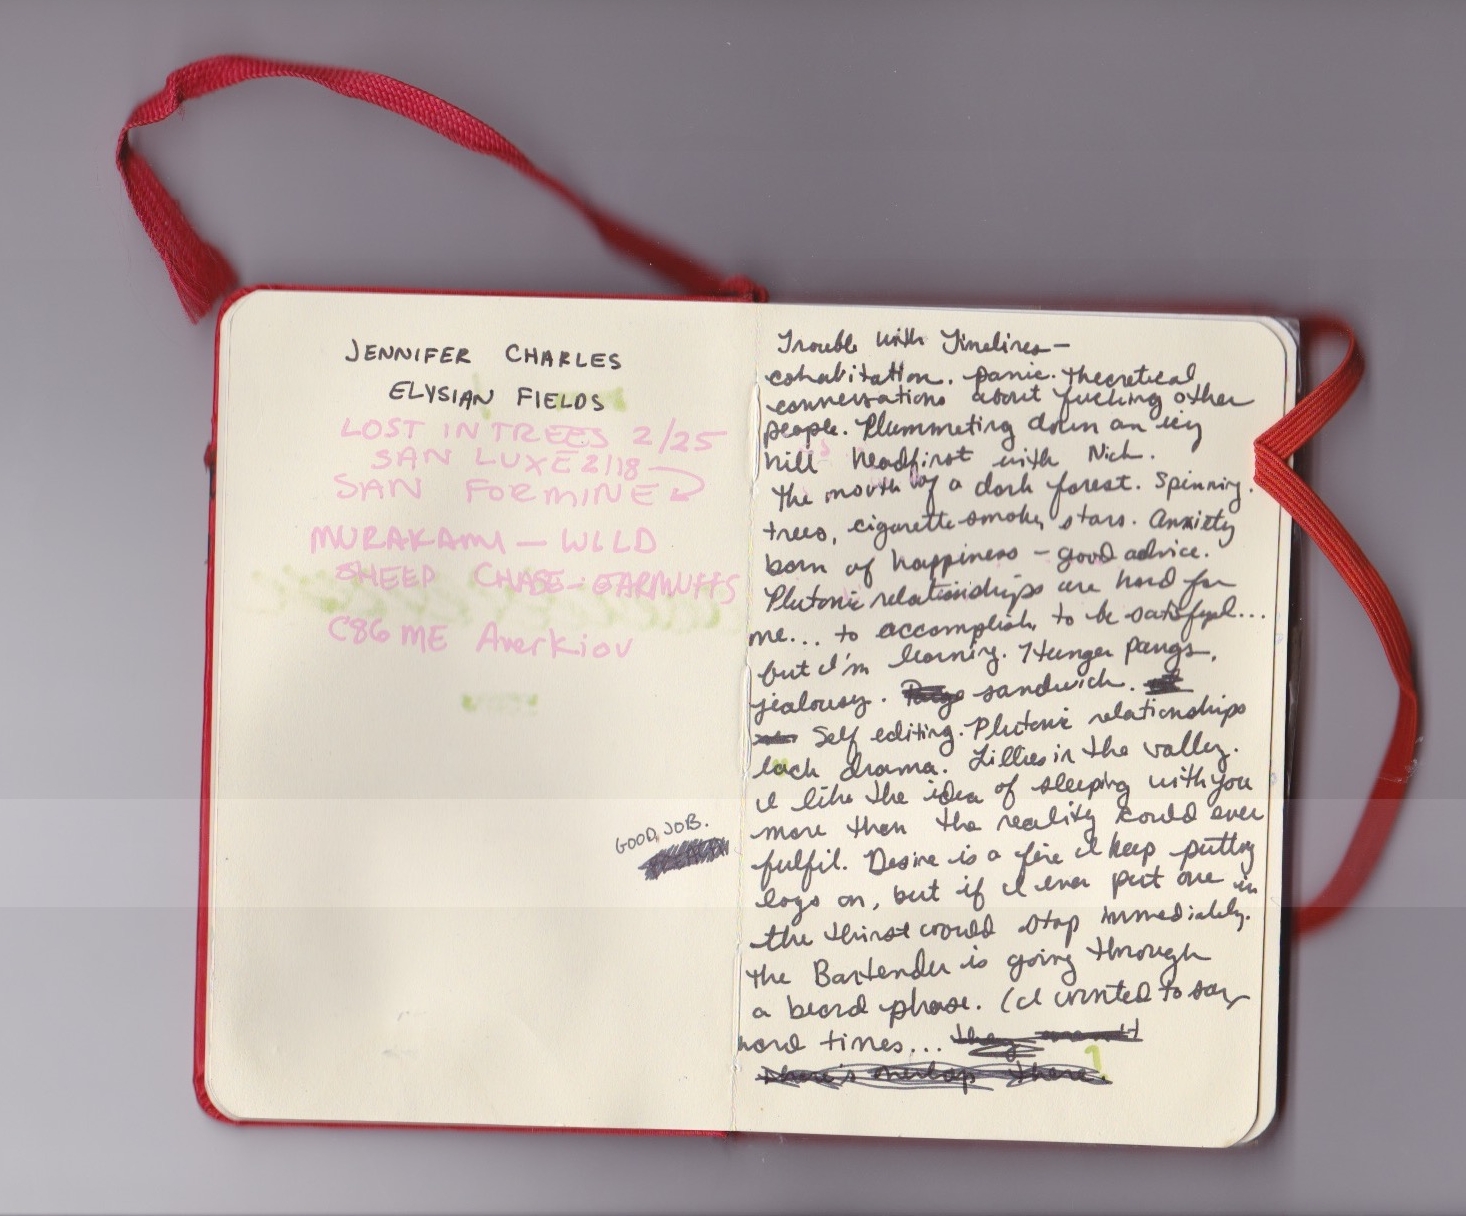 JENNIFER CHARLES
ELYSIAN FIELDS
LOST IN TREES 2/25
SAN LUXE 2/18
SAN FORMINE
MURAKAMI — WILD
SHEEP CHASE - EARMUFFS
C86 ME Averkiov
GOOD JOB.
Trouble with Timelines —
cohabitation. panic. theoretical
conversations about fucking other
people. Plummeting down an icy
hill headfirst with Nick.
the mouth of a dark forest. Spinning.
trees, cigarette smoke, stars. Anxiety
born of happiness — good advice.
Plutonic relationships are hard for
me... to accomplish, to be satisfied...
but I'm learning. Hunger pangs,
jealousy. sandwich.
Self editing. Plutonic relationships
lack drama. Lillies in the valley.
I like the idea of sleeping with you
more than the reality could ever
fulfil. Desire is a fire I keep putting
logs on, but if I ever put one in
the thirst would stop immediately.
the Bartender is going through
a beard phase. (I wanted to say
hard times... they
there's overlap there.